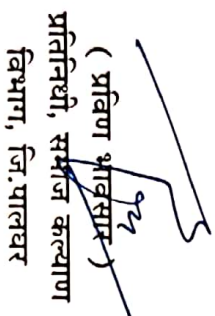 ( प्रविण भावसार )
प्रतिनिधी, समाज कल्याण
विभाग, जि.पालघर